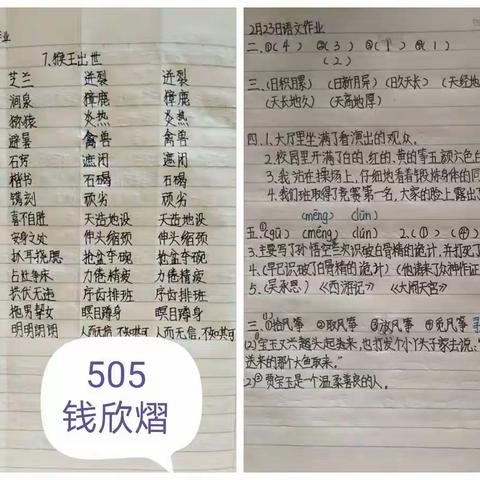 业
7.猴王出世
芝兰 迸裂 迸裂
涧泉 獐鹿 獐鹿
猕猿 炎热 炎热
避暑 禽兽 禽兽
石窍 遮闭 遮闭
楷书 石碣 石碣
镌刻 顽劣 顽劣
喜不自胜 天造地设 天造地设
安身之处 伸头缩颈 伸头缩颈
抓耳挠腮 抢盆夺碗 抢盆夺碗
占灶争床 力倦精疲 力倦精疲
拱伏无违 序齿排班 序齿排班
拖男挈女 瞑目蹲身 瞑目蹲身
明明朗朗 人而无信,不知其可 人而无信,不知其可
505
钱欣熠
2月23日语文作业
二.①(4) ②(3) ③(1) ④(1)
(2)
三.(日积月累) (日新月异) (日久天长) (天经地
(天长地久) (天高地厚)
四.1.大厅里坐满了看演出的观众。
2.校园里开满了白的,红的,黄的等五颜六色的
3.我站在操场上,仔细地看着锻炼身体的同
4.我们班取得了竞赛第一名,大家的脸上露出了
(mēng) (lūn)
五.(gū) (mēng) (lūn) 2.(①) (④)
3.主要写了孙悟空三次识破白骨精的诡计,并打死了
4.(早已识破了白骨精的诡计)
5.(吴承恩) 《西游记》 《大闹天宫》
三.(1)①拾风筝 ②取风筝 ③放风筝 ④觅风筝
(2)①宝玉又兴头起来,也打发个小丫头子家去说:"
送来的那个大鱼取来。"
2)②贾宝玉是一个温柔善良的人。